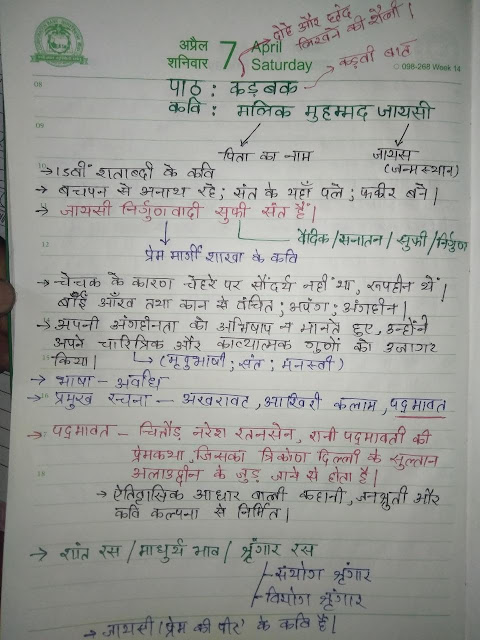 दोहे और छंद
लिखने की शैली।
अप्रैल 7 April
शनिवार Saturday
कड़वी बात
098-268 Week 14
08
पाठ : कड़बक
कवि : मलिक मुहम्मद जायसी
09
पिता का नाम जायस
(जन्मस्थान)
10
→ 15वीं शताब्दी के कवि
→ बचपन से अनाथ रहे; संत के यहाँ पले; फकीर बने।
→ जायसी निर्गुणवादी सूफी संत हैं।
वैदिक/सनातन/सूफी/निर्गुण
प्रेम मार्गी शाखा के कवि
→ चेचक के कारण चेहरे पर सौंदर्य नहीं था, रूपहीन थें
बाँई आँख तथा कान से वंचित; अपंग; अंगहीन।
→ अपनी अंगहीनता को अभिषाप न मानते हुए, उन्होंने
अपने चारित्रिक और काव्यात्मक गुणों को उजागर
किया। (मृदुभाषी; संत; मनस्वी)
→ भाषा - अवधि
→ प्रमुख रचना - अखरावट, आखिरी कलाम, पद्मावत
→ पद्मावत - चितौड़ नरेश रतनसेन, रानी पदमावती की
प्रेमकथा, जिसका त्रिकोण दिल्ली के सुल्तान
18
अलाउद्दीन के जुड़ जाने से होता है।
→ ऐतिहासिक आधार वाली कहानी, जनश्रुती और
कवि कल्पना से निर्मित।
→ शांत रस / माधुर्य भाव / श्रृंगार रस
- संयोग श्रृंगार
- वियोग श्रृंगार
→ जायसी 'प्रेम की पीर' के कवि है।